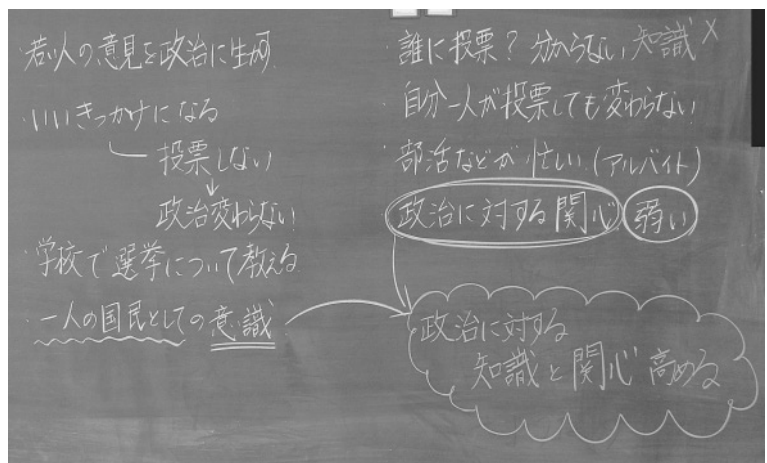 ・若い人の意見を政治に生かす
・いいきっかけになる
投票しない
↓
政治変わらない
・学校で選挙について教える
・一人の国民としての意識
・誰に投票？分からない、知識×
・自分一人が投票しても変わらない
・部活などが忙しい（アルバイト）
政治に対する関心 弱い
政治に対する
知識と関心高める